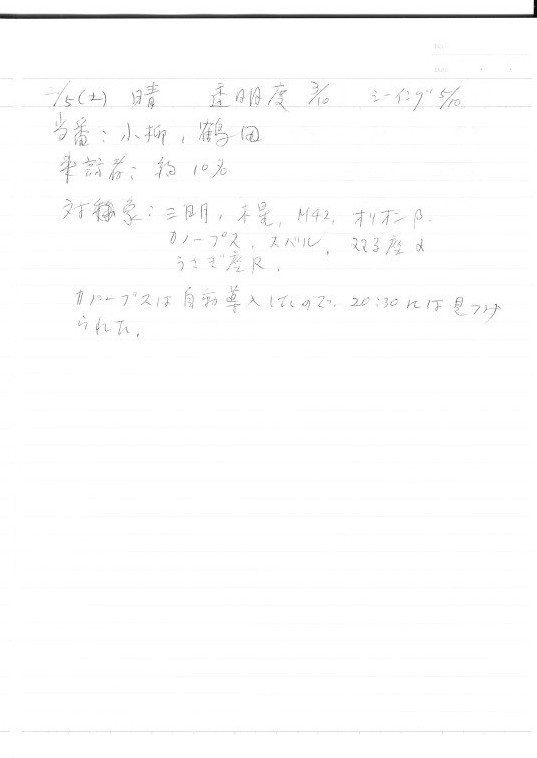 No.
Date
2/5(土) 晴 透明度 3/10 シーイング 5/10
当番:小柳,鶴田
来訪者:約10名
対象:三日月,木星,M42,オリオンβ.
カノープス,スバル,ふたご座α
うさぎ座R.
カノープスは自動導入したので,20:30には見つけ
られた.